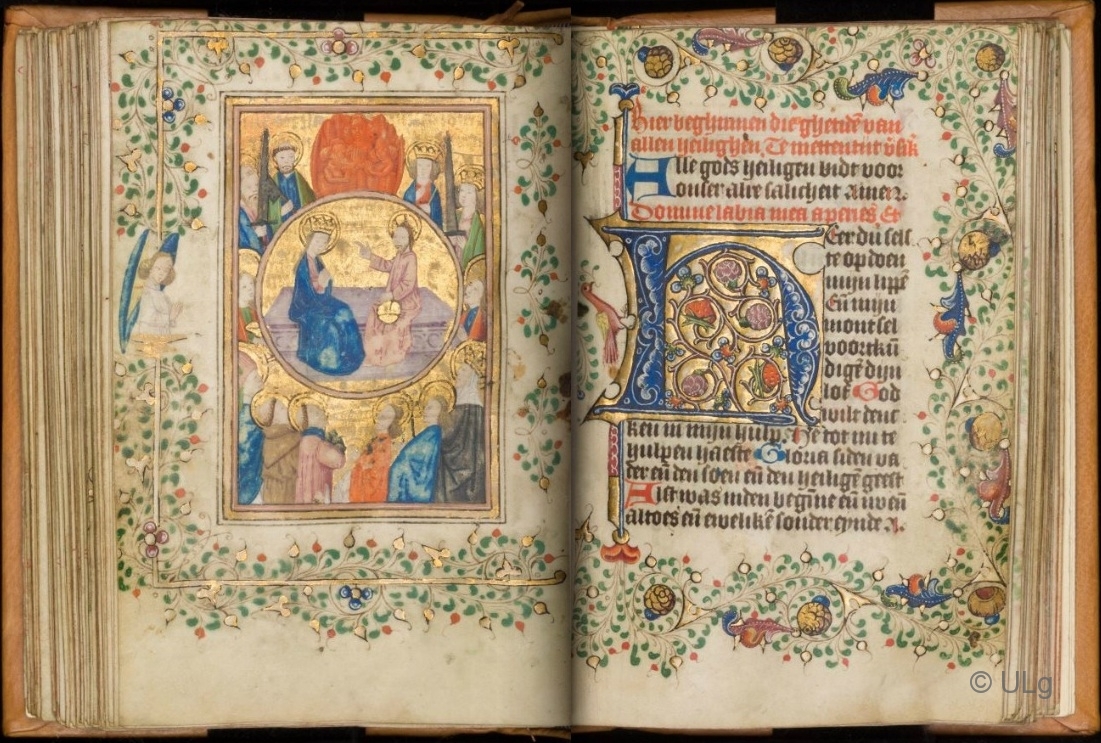 Hier beghinnen die ghetidē van
allen heilighen. Te mettentijt
Alle gods heiligen bidt voor
onser alre salicheit Amen.
Domine labia mea aperies Et
Heer du sels
te op doen
mijn lippē
Eñ mijn
mont sel
voortkū
digē dijn
lof. God
wilt denc
ken in mijn hulp. He tot mi te
hulpen haeste Gloria si den va
der eñ den soen eñ den heiligē geest
Alst was inden begīne eñ nv eñ
altoes eñ ewelikē sonder eynde A.
© ULg